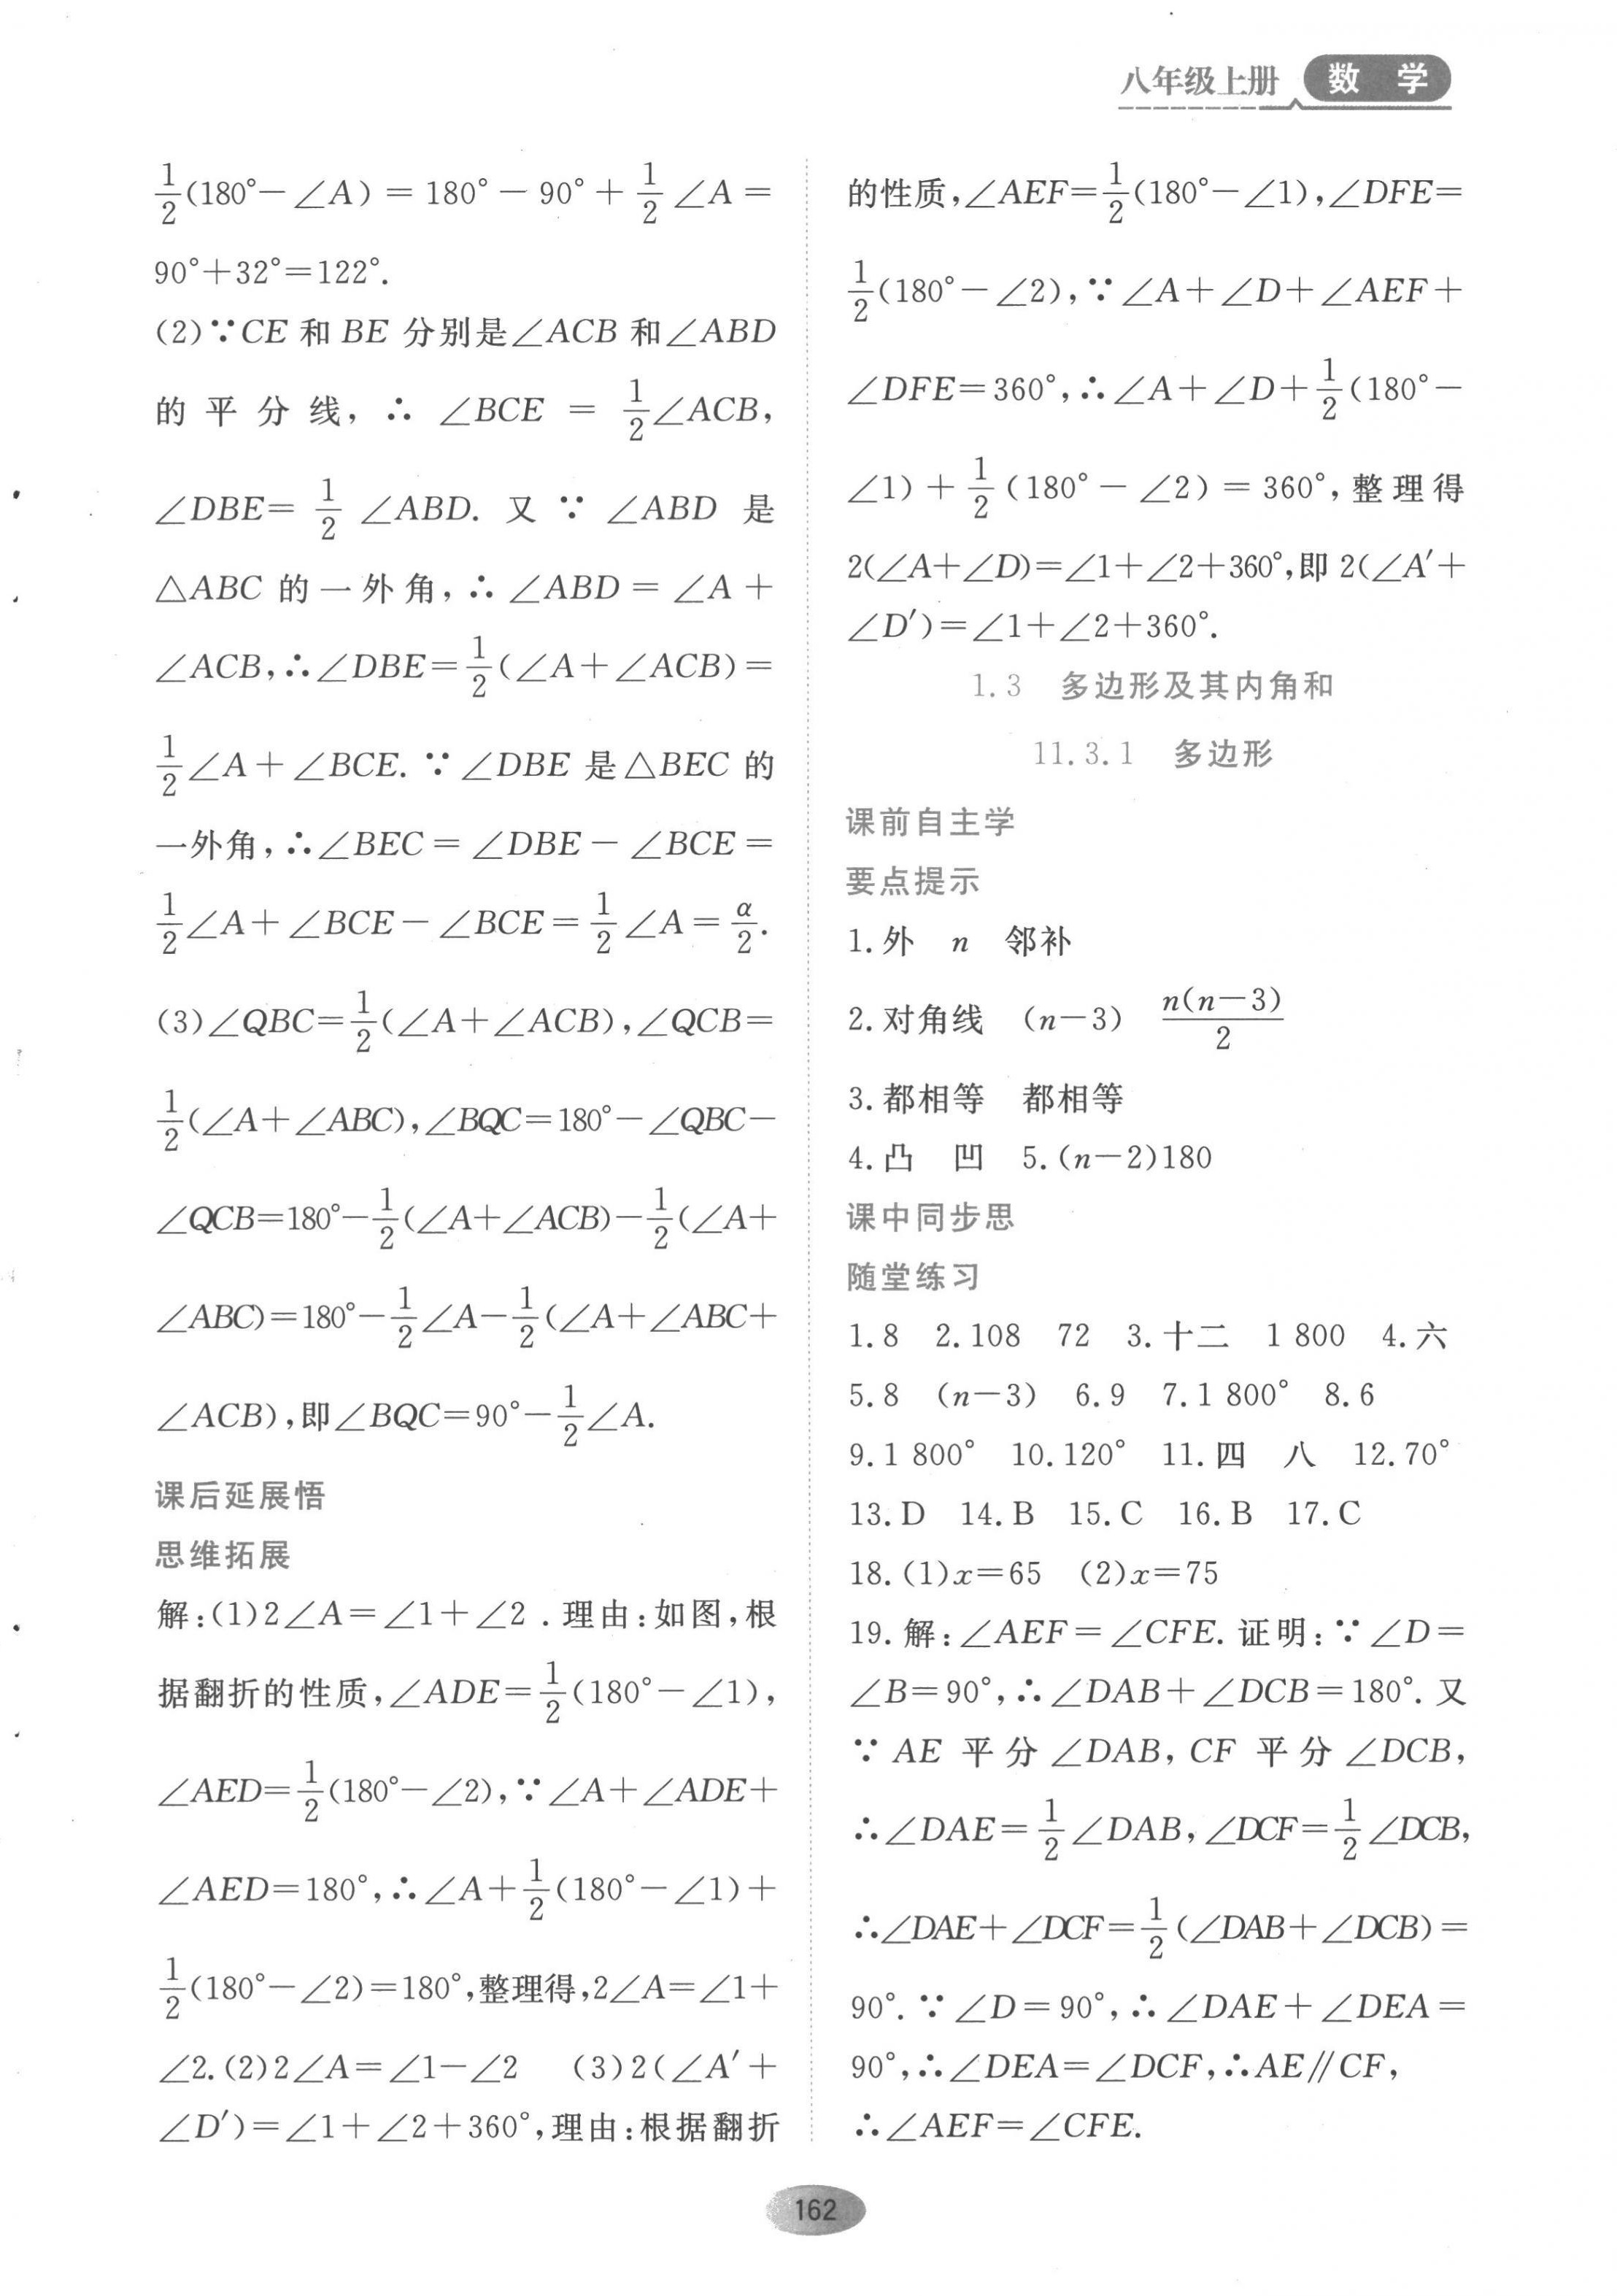 八年级上册 数 学
1/2(180°－∠A)＝180°－90°＋1/2∠A＝
90°＋32°＝122°.
(2)∵CE 和 BE 分别是∠ACB 和∠ABD
的平分线，∴ ∠BCE ＝ 1/2∠ACB,
∠DBE＝ 1/2 ∠ABD. 又 ∵ ∠ABD 是
△ABC 的一外角，∴∠ABD＝∠A＋
∠ACB,∴∠DBE＝1/2(∠A＋∠ACB)＝
1/2∠A＋∠BCE.∵∠DBE 是△BEC 的
一外角，∴∠BEC＝∠DBE－∠BCE＝
1/2∠A＋∠BCE－∠BCE＝1/2∠A＝α/2.
(3)∠QBC＝1/2(∠A＋∠ACB),∠QCB＝
1/2(∠A＋∠ABC),∠BQC＝180°－∠QBC－
∠QCB＝180°－1/2(∠A＋∠ACB)－1/2(∠A＋
∠ABC)＝180°－1/2∠A－1/2(∠A＋∠ABC＋
∠ACB),即∠BQC＝90°－1/2∠A.
课后延展悟
思维拓展
解:(1)2∠A＝∠1＋∠2 .理由:如图,根
据翻折的性质,∠ADE＝1/2(180°－∠1),
∠AED＝1/2(180°－∠2),∵∠A＋∠ADE＋
∠AED＝180°,∴∠A＋1/2(180°－∠1)＋
1/2(180°－∠2)＝180°,整理得,2∠A＝∠1＋
∠2.(2)2∠A＝∠1－∠2 (3)2(∠A′＋
∠D′)＝∠1＋∠2＋360°,理由:根据翻折
的性质,∠AEF＝1/2(180°－∠1),∠DFE＝
1/2(180°－∠2),∵∠A＋∠D＋∠AEF＋
∠DFE＝360°,∴∠A＋∠D＋1/2(180°－
∠1)＋1/2(180°－∠2)＝360°,整理得
2(∠A＋∠D)＝∠1＋∠2＋360°,即 2(∠A′＋
∠D′)＝∠1＋∠2＋360°.
1.3 多边形及其内角和
11.3.1 多边形
课前自主学
要点提示
1.外 n 邻补
2.对角线 (n－3) n(n－3)/2
3.都相等 都相等
4.凸 凹 5.(n－2)180
课中同步思
随堂练习
1.8 2.108 72 3.十二 1 800 4.六
5.8 (n－3) 6.9 7.1 800° 8.6
9.1 800° 10.120° 11.四 八 12.70°
13.D 14.B 15.C 16.B 17.C
18.(1)x＝65 (2)x＝75
19.解:∠AEF＝∠CFE.证明:∵∠D＝
∠B＝90°,∴∠DAB＋∠DCB＝180°.又
∵ AE 平分∠DAB, CF 平分∠DCB,
∴∠DAE＝1/2∠DAB,∠DCF＝1/2∠DCB,
∴∠DAE＋∠DCF＝1/2(∠DAB＋∠DCB)＝
90°.∵∠D＝90°,∴∠DAE＋∠DEA＝
90°,∴∠DEA＝∠DCF,∴AE∥CF,
∴∠AEF＝∠CFE.
162